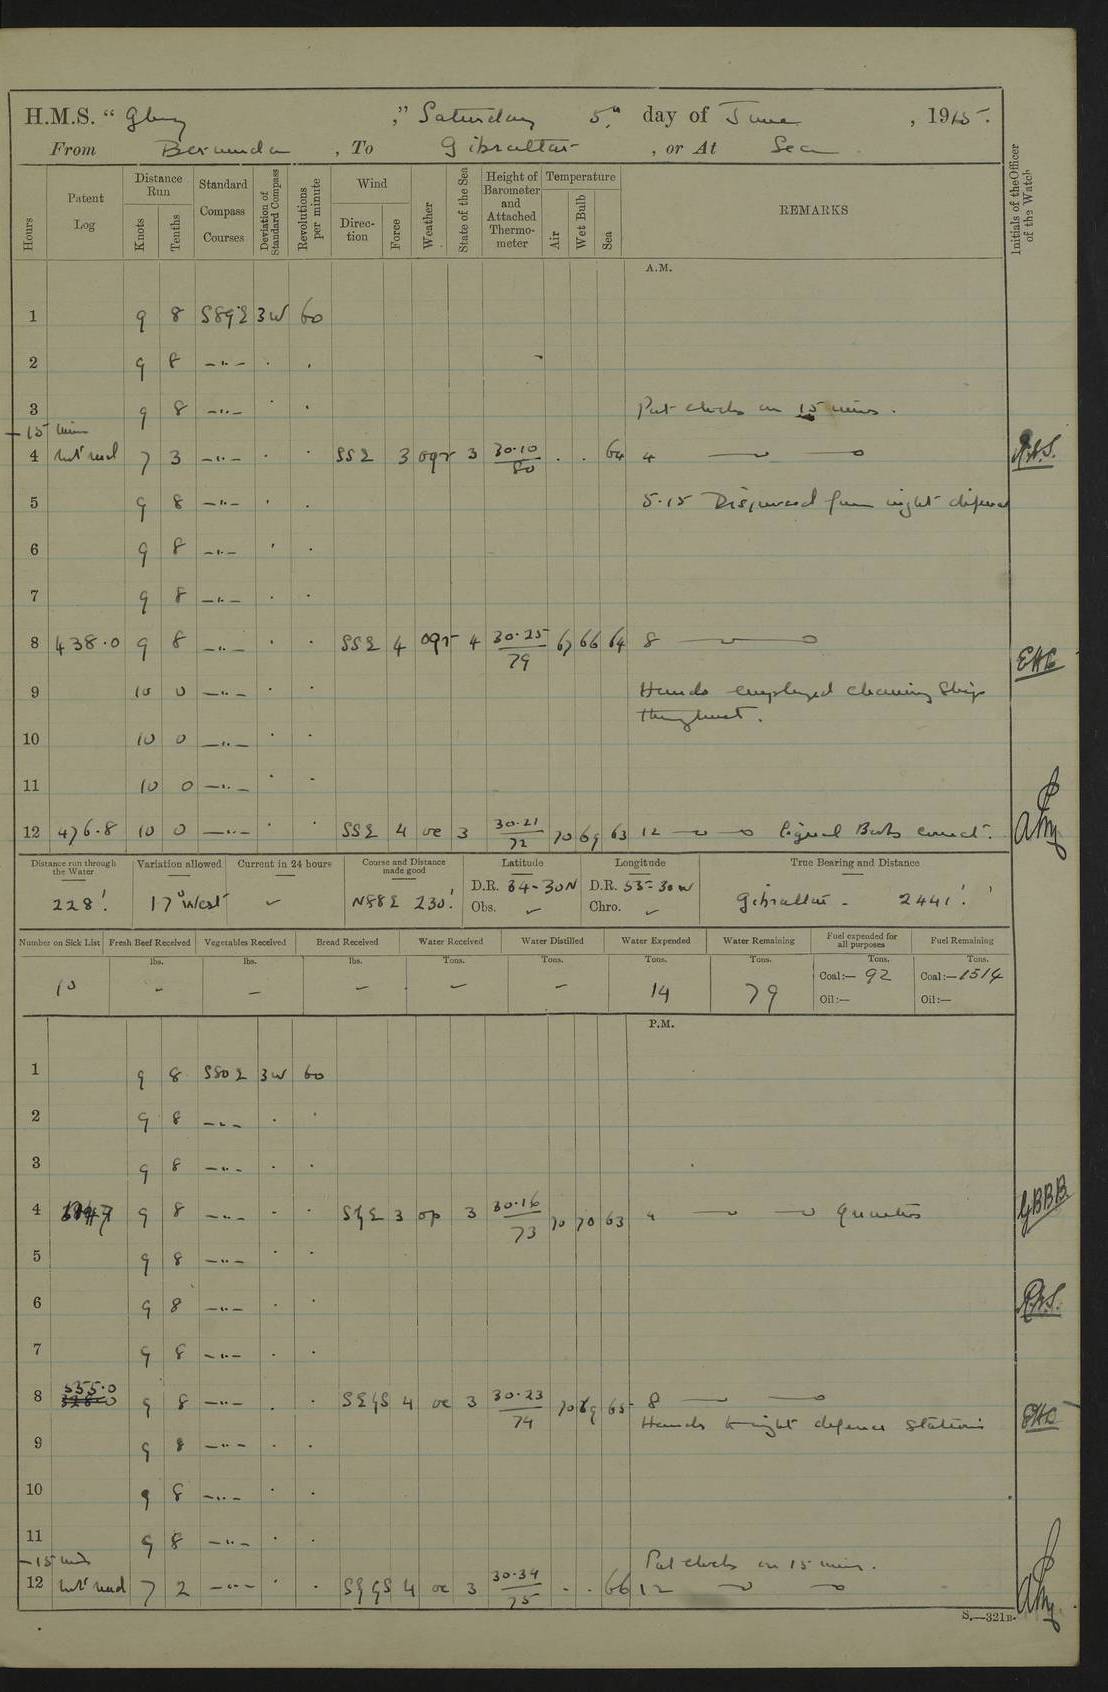 H.M.S. “ Glory ,” Saturday 5th day of June , 1915.
From Bermuda , To Gibraltar , or At Sea
Hours
Patent Log
Distance Run
Knots
Tenths
Standard Compass Courses
Deviation of Standard Compass
Revolutions per minute
Wind
Direction
Force
Weather
State of the Sea
Height of Barometer and Attached Thermometer
Temperature
Air
Wet Bulb
Sea
REMARKS
Initials of the Officer of the Watch
A.M.
1 9 8 S89E 3W 60
2 9 8 —"—
3 9 8 —"— Put clocks on 15 mins.
— 15 min
4 not read 7 3 —"— SSE 3 oqr 3 30.10/80 64 4
5 9 8 —"— 5.15 Dispersed from night defence
6 9 8 —"—
7 9 8 —"—
8 438.0 9 8 —"— SSE 4 oqr 4 30.25/79 67 66 64 8
9 10 0 —"— Hands employed cleaning ship
throughout.
10 10 0 —"—
11 10 0 —"—
12 476.8 10 0 —"— SSE 4 oc 3 30.21/72 70 69 63 12 Signal Books correct.
Distance run through the Water
Variation allowed
Current in 24 hours
Course and Distance made good
Latitude
Longitude
True Bearing and Distance
228'. 17° West N88E 230'. D.R. 34-30N D.R. 53-30W Gibraltar - 2441'.
Obs. Chro.
Number on Sick List
Fresh Beef Received
Vegetables Received
Bread Received
Water Received
Water Distilled
Water Expended
Water Remaining
Fuel expended for all purposes
Fuel Remaining
lbs. lbs. lbs. Tons. Tons. Tons. Tons. Tons. Tons.
10 - - - - - 14 79 Coal:— 92 Coal:—1514
Oil:— Oil:—
P.M.
1 9 8 S80E 3W 60
2 9 8 —"—
3 9 8 —"—
4 9 8 —"— 3 op 3 30.16/73 70 70 63 4 Quarters
GBBB
5 9 8 —"—
6 9 8 —"—
7 9 8 —"—
8 535.0 9 8 —"— 4 oc 3 30.23/74 70 69 65 8
Hands to night defence stations
9 9 8 —"—
10 9 8 —"—
11 9 8 —"—
— 15 mins Put clocks on 15 mins.
12 not read 7 2 —"— 4 oc 3 30.34/75 66 12
S.—321B.